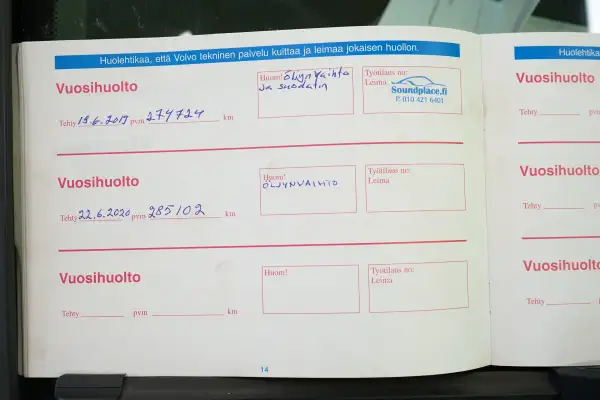 Huolehtikaa, että Volvo tekninen palvelu kuittaa ja leimaa jokaisen huollon.
Vuosihuolto
Huom! Öljynvaihto
ja suodatin
Työtilaus no:
Leima
Soundplace.fi
P. 010 421 6401
Tehty 19.6.2019 pvm 274724 km
Vuosihuolto
Huom!
ÖLJYNVAIHTO
Työtilaus no:
Leima
Tehty 22.6.2020 pvm 285102 km
Vuosihuolto
Huom!
Työtilaus no:
Leima
Tehty pvm km
14
Huolehtika
Vuosihuolto
Tehty
Vuosihuolto
Tehty
Vuosihuolto
Tehty